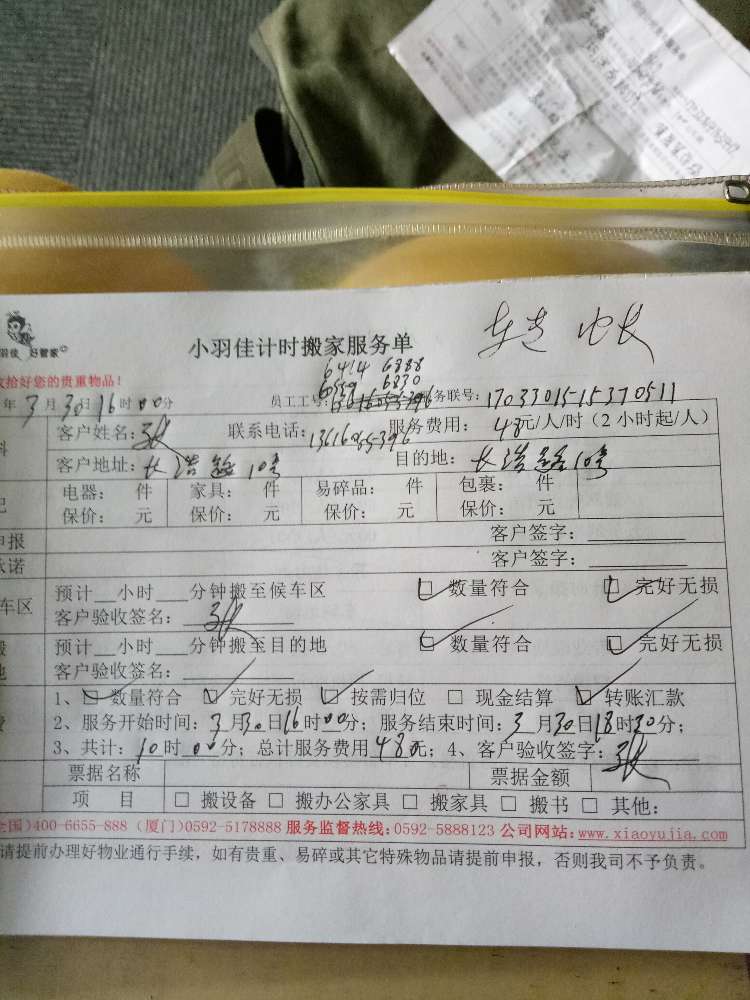 好管家
小羽佳计时搬家服务单
6414 6888
6830
收拾好您的贵重物品！
年3月30日16时00分 员工工号： 务联号：17033015-15370511
客户姓名：张 联系电话： 服务费用：48元/人/时（2小时起/人）
客户地址：长浩路10号 目的地：长浩路10号
电器： 件 家具： 件 易碎品： 件 包裹： 件
保价： 元 保价： 元 保价： 元 保价： 元
申报 客户签字：
承诺 客户签字：
预计 小时 分钟搬至候车区 数量符合 完好无损
车区
客户验收签名：张
预计 小时 分钟搬至目的地 数量符合 完好无损
客户验收签名：
1、 数量符合 完好无损 按需归位 现金结算 转账汇款
2、服务开始时间：3月30日16时00分；服务结束时间：3月30日18时30分；
3、共计：10时00分；总计服务费用480元；4、客户验收签字：张
票据名称 票据金额
项 目 搬设备 搬办公家具 搬家具 搬书 其他：
全国)400-6655-888 (厦门)0592-5178888 服务监督热线:0592-5888123 公司网站:www.xiaoyujia.com
请提前办理好物业通行手续，如有贵重、易碎或其它特殊物品请提前申报，否则我司不予负责。